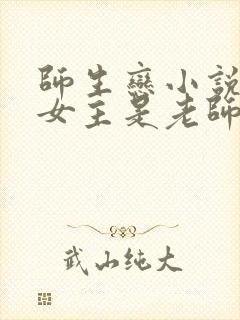 師生戀小說
女主是老師
武山純大